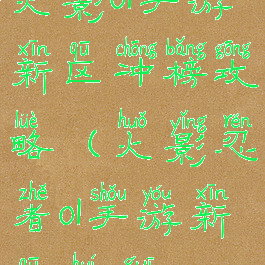 火影ol手游
xīn qū chōng bǎng gōng
新区冲榜攻
lüè huǒ yǐng rěn
略（火影忍
zhě shǒu yóu xīn
者ol手游新